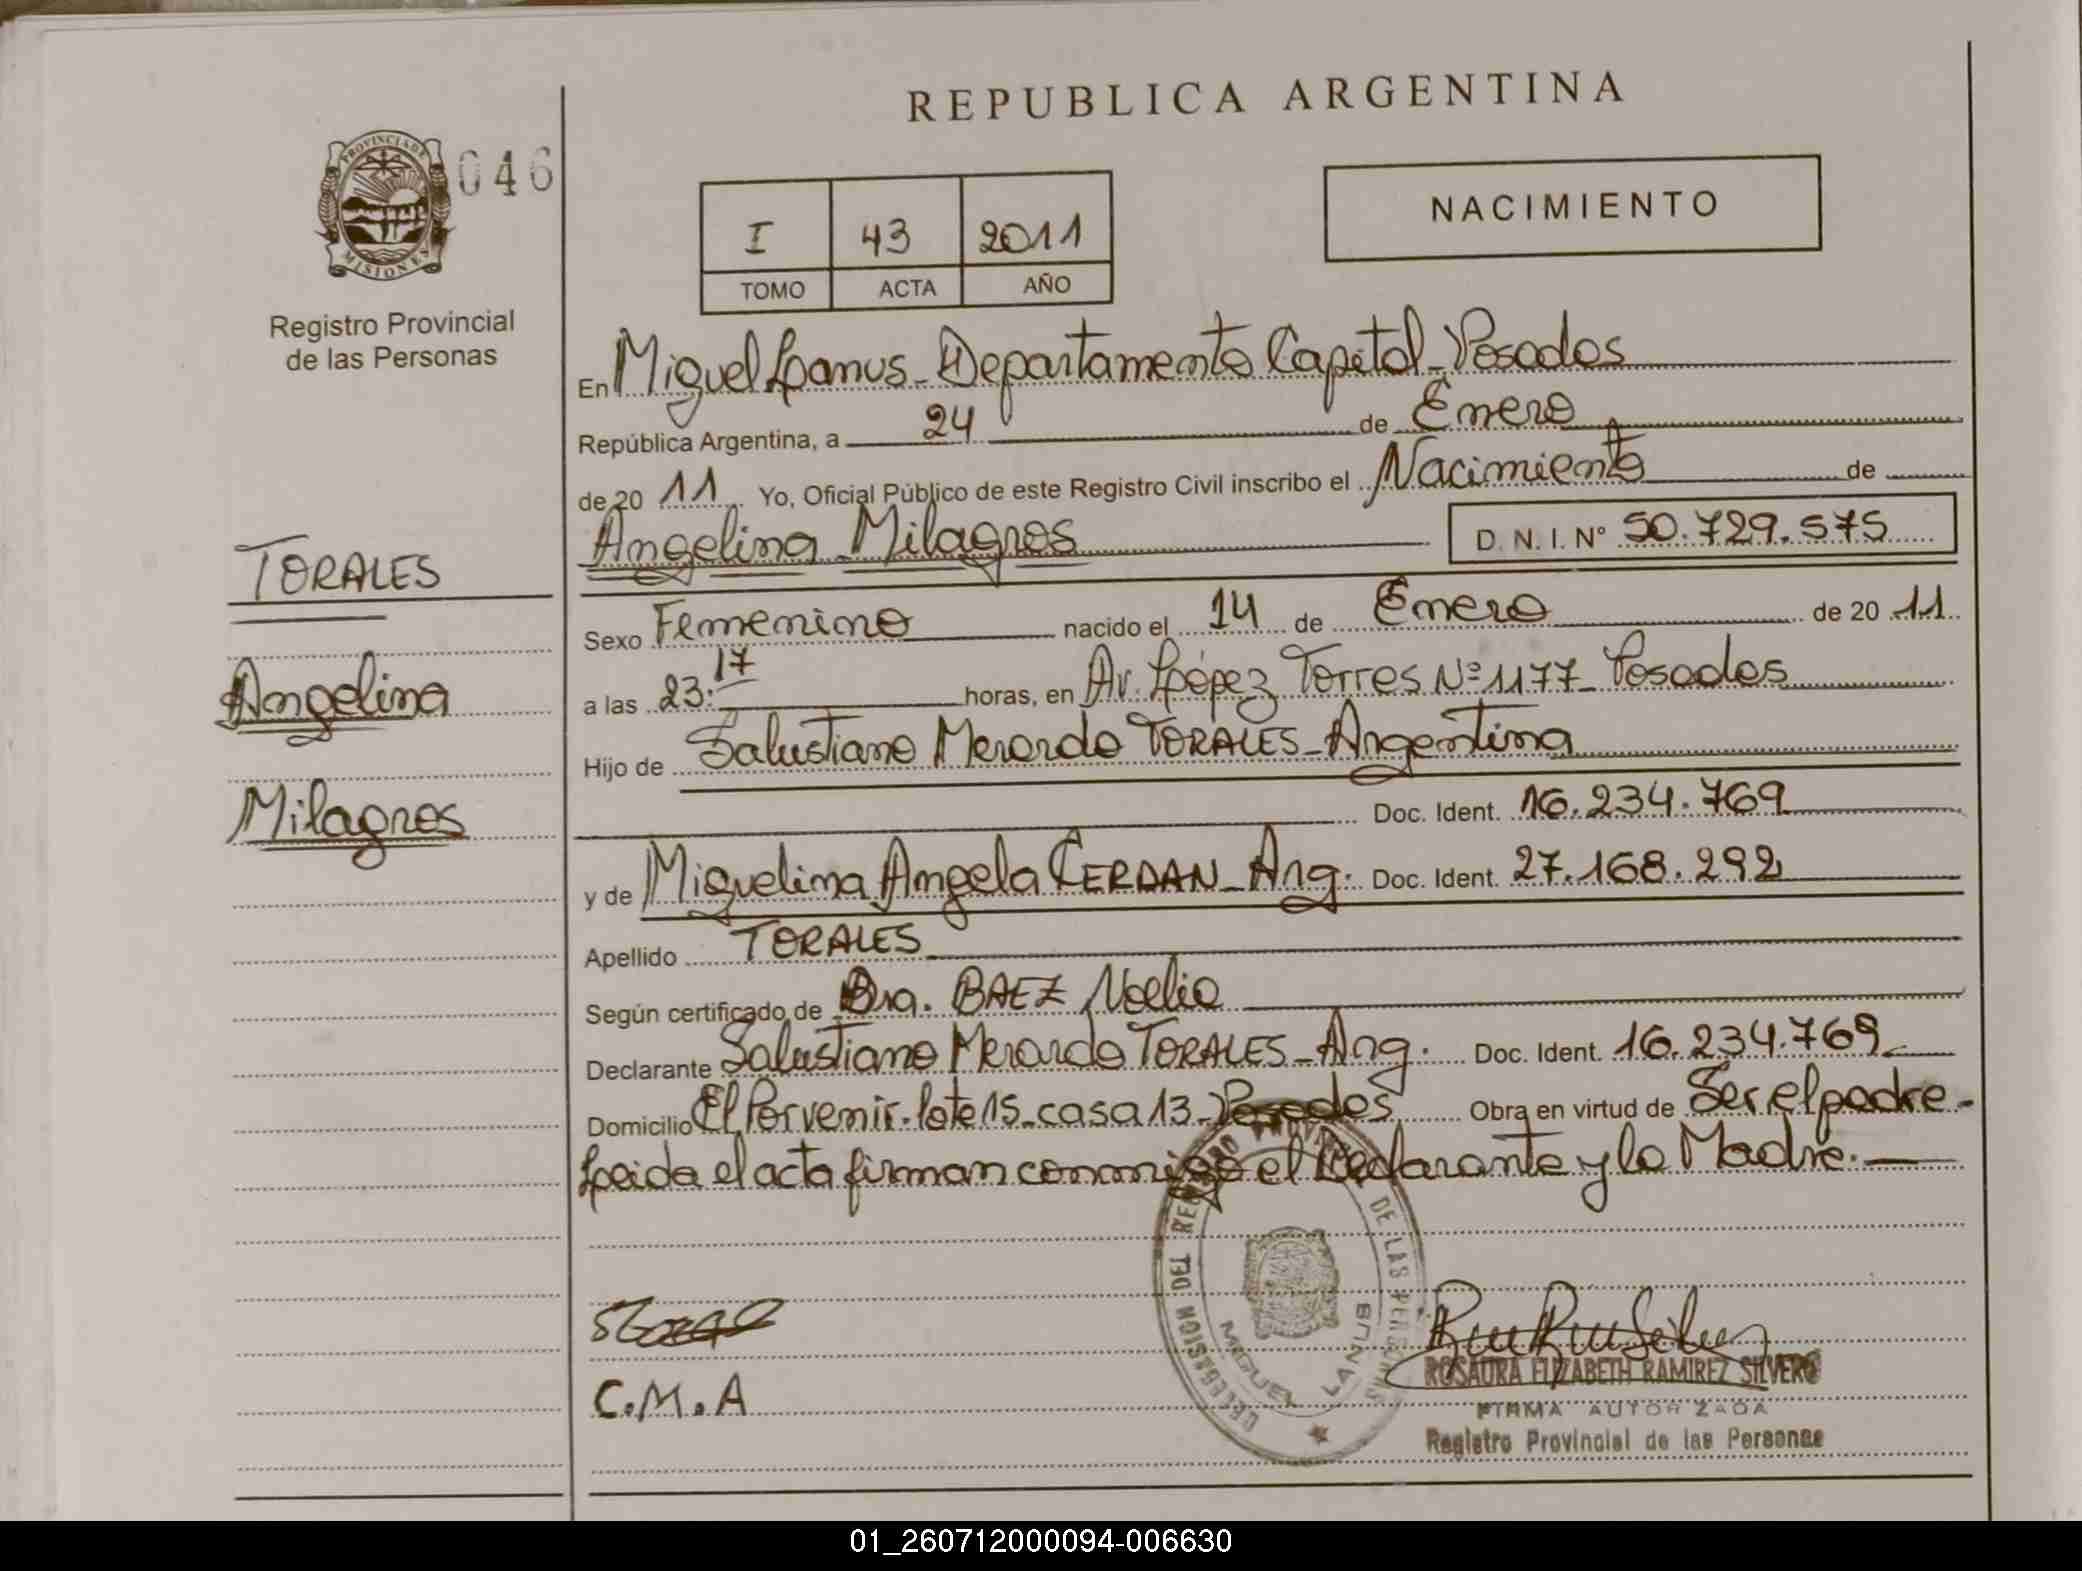 REPUBLICA ARGENTINA
PROVINCIA DE MISIONES
046
Registro Provincial
de las Personas
I 43 2011
TOMO ACTA AÑO
NACIMIENTO
TORALES
Angelina
Milagros
En Miguel Lanus - Departamento Capital - Posadas
República Argentina, a 24 de Enero
de 20 11 Yo, Oficial Público de este Registro Civil inscribo el Nacimiento de
Angelina Milagros D. N. I. Nº 50.729.575
Sexo Femenino nacido el 14 de Enero de 20 11
a las 23:17 horas, en Av. López Torres Nº 1177 - Posadas
Hijo de Salustiano Merardo TORALES - Argentina
Doc. Ident. 16.234.769
y de Miguelina Angela CERDAN - Arg. Doc. Ident. 27.168.292
Apellido TORALES
Según certificado de Dra. BAEZ Noelia
Declarante Salustiano Merardo TORALES - Arg. Doc. Ident. 16.234.769
Domicilio El Porvenir. lote 15 - casa 13 - Posadas Obra en virtud de Ser el padre -
Leida el acta firman conmigo el Declarante y la Madre. —
C.M.A
DELEGACION DEL REGISTRO PROVINCIAL DE LAS PERSONAS
MIGUEL LANUS
ROSAURA ELIZABETH RAMIREZ SILVERO
FIRMA AUTORIZADA
Registro Provincial de las Personas
01_260712000094-006630